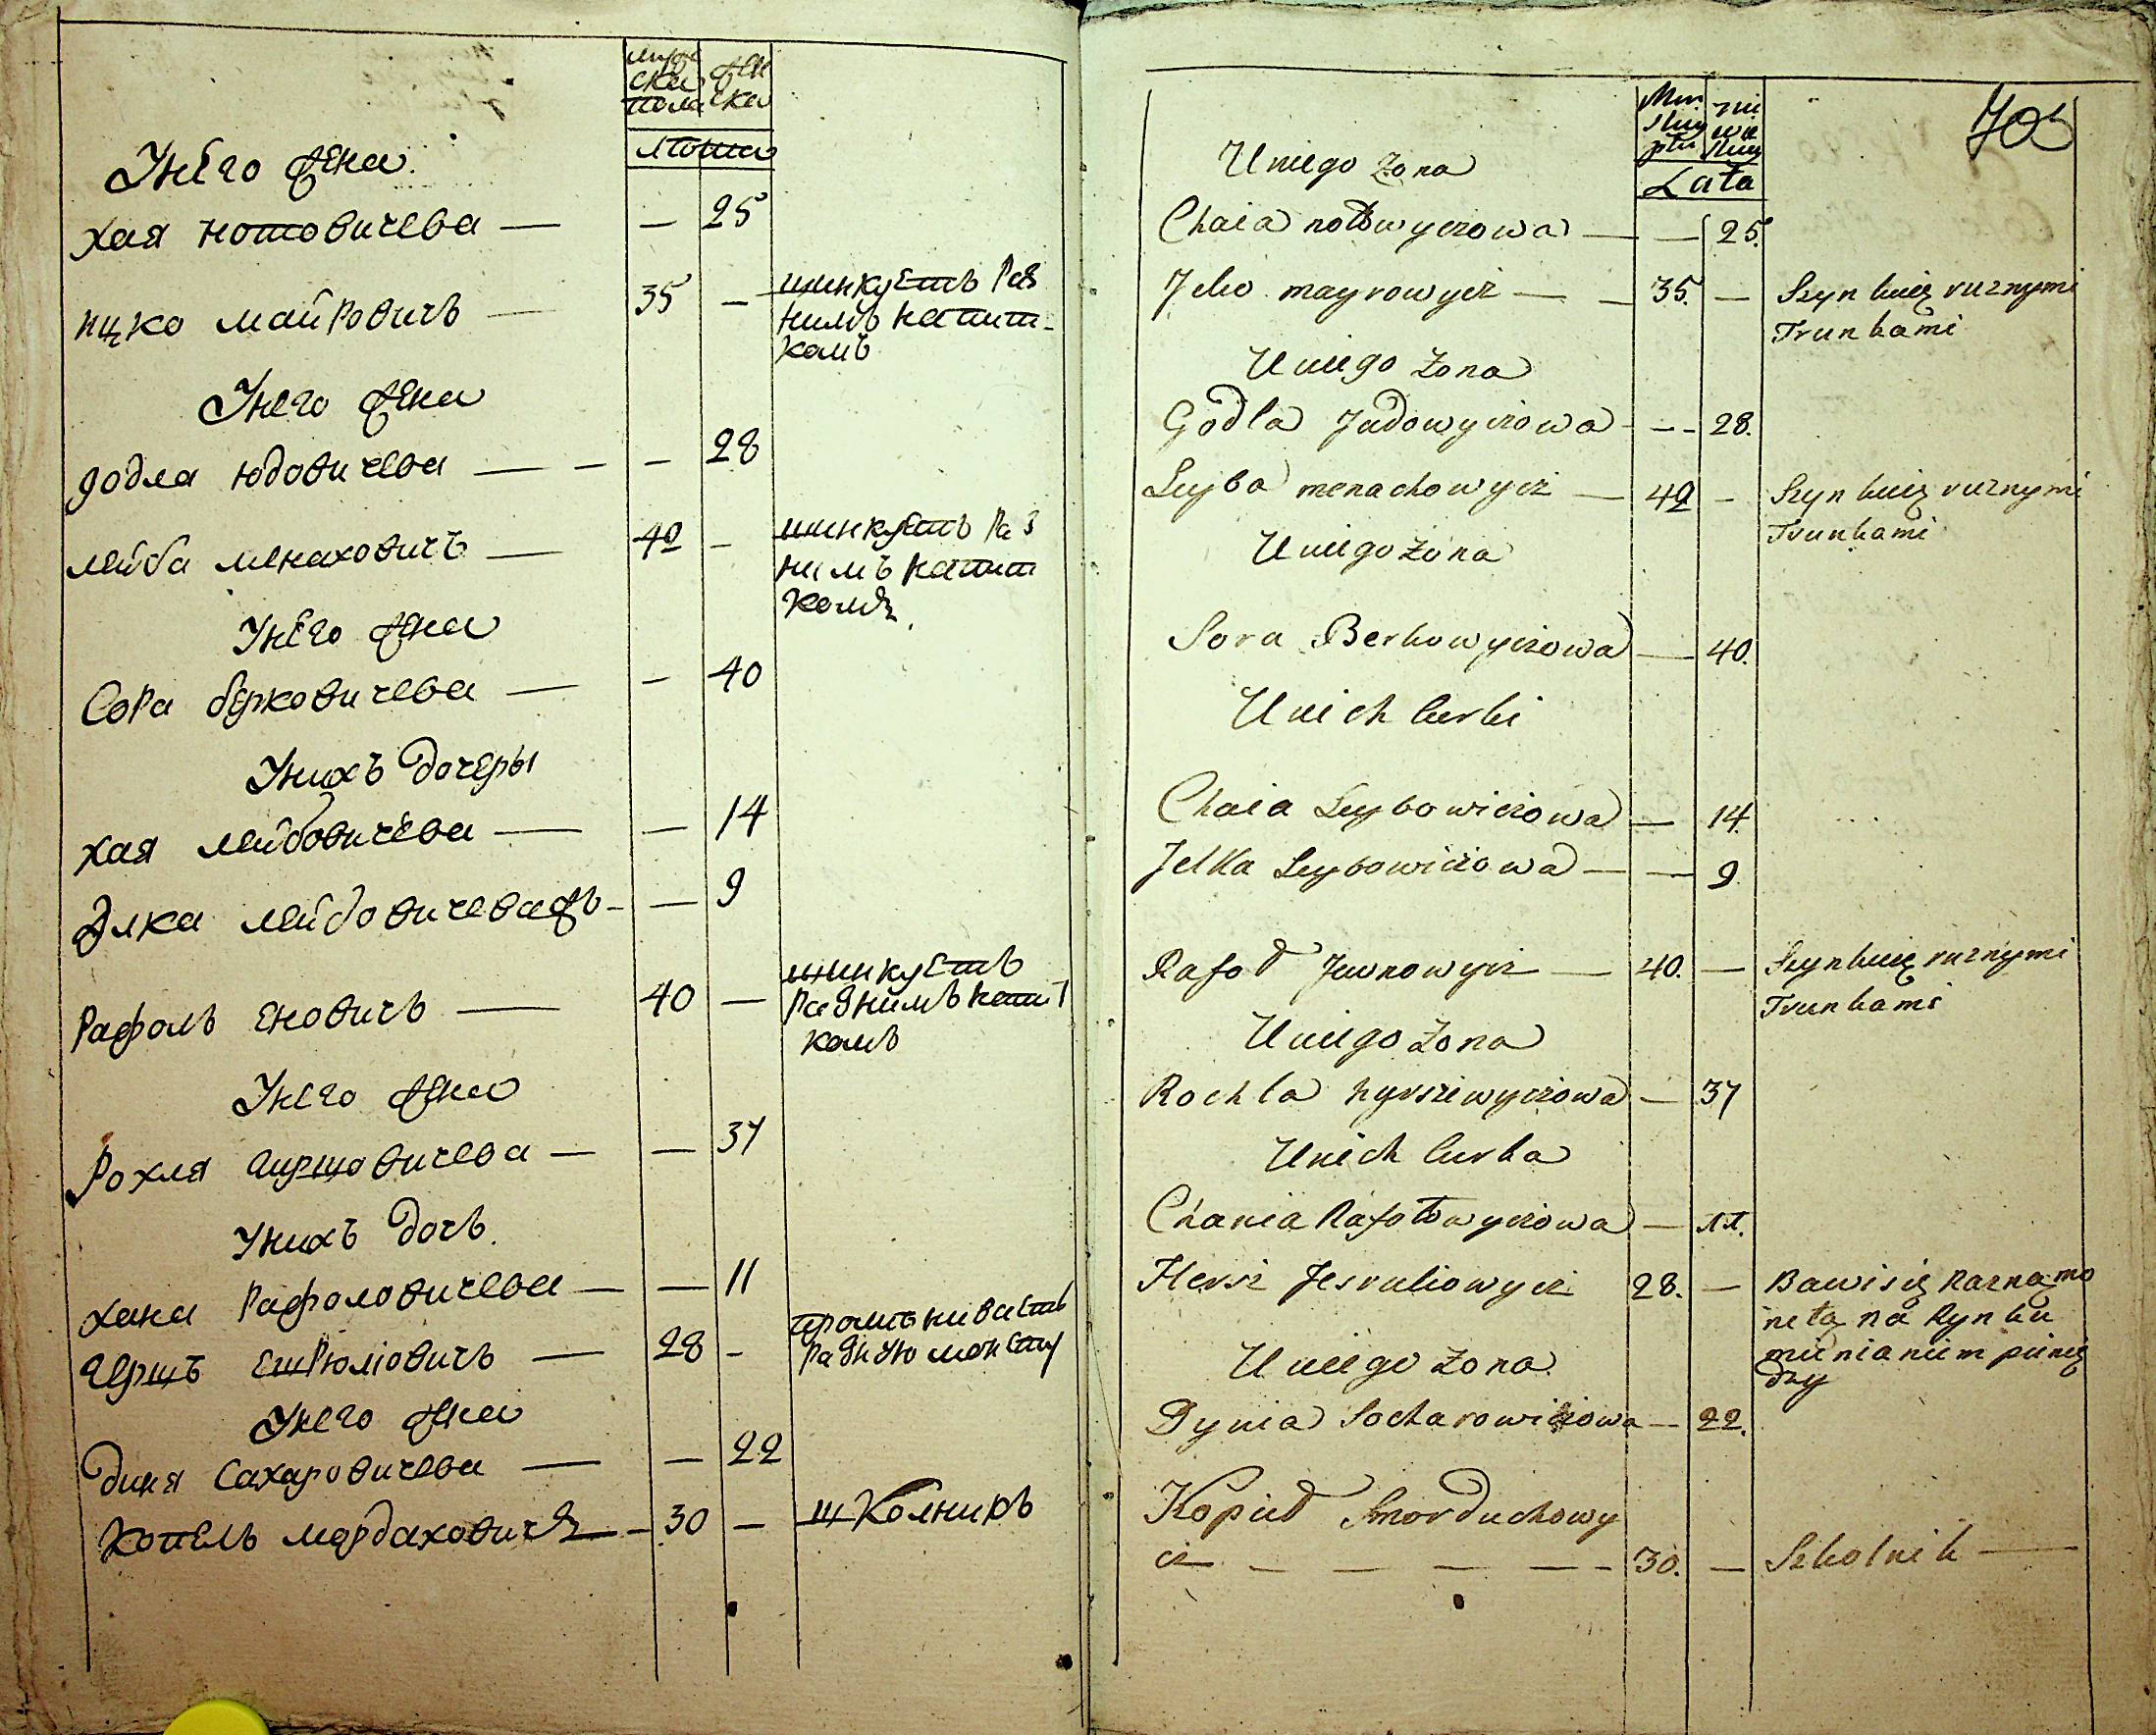 мужеска пола
женска
лѣта
Унего жена
хая нотовичева — — 25
ицко майровичъ — 35 — шинкуетъ раз
нимъ напит-
камъ
Унего жена
годля юдовичева — — — 28
лейба менаховичъ — 42 — шинкуетъ раз
нимъ напит
камъ
Унего жена
Сора берковичева — — 40
Унихъ дочеры
хая лейбовичева — — 14
Элка лейбовичева — — 9
Рафолъ еновичъ — 40 — шинкуетъ
разнимъ напит
камъ
Унего жена
Рохля гиршовичева — — 37
Унихъ дочь
хана рафоловичева — — 11
герщъ ешрюліовичъ — 28 - промѣниваетъ
разную монету
Унего жена
диня Сахаровичева — — 22
Копель мордаховичъ — 30 — школникъ
703
Lata
Uniego Zona
Chaia notowyczowa — — 25.
Jcko mayrowycz — — 35. — Szynkuię rużnymi
Trunkami
Uniego Zona
Godla Judowyczowa - — - 28.
Leyba menachowycz — 42 — Szynkuię rużnymi
Trunkami
Uniego Zona
Sora Berkowyczowa — 40.
Unich Curki
Chaia Leybowiczowa — 14.
Jelka Leybowiczowa — — 9.
Rafoł Jewnowycz — 40. — Szynkuię rużnymi
Trunkami
Uniego Zona
Rochla hyrszewyczowa — 37
Unich Curka
Chania Rafołowyczowa — 11.
Hersz Jesruliowycz 28. — Bawi się Razną mo
netą na Rynku
mienianiem pienię
dzy
Uniego Zona
Dynia Socharowiczowa — 22.
Kopiel Smorduchowy
cz — — — — — 30. — Szkolnik —